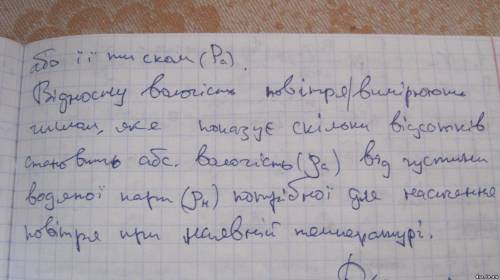 або її тиском (Pa).
Відносну вологість повітря/вимірюють
числом, яке показує скільки відсотків
становить абс. вологість (ρa) від густини
водяної пари (ρн) потрібної для насичення
повітря при наявній температурі.